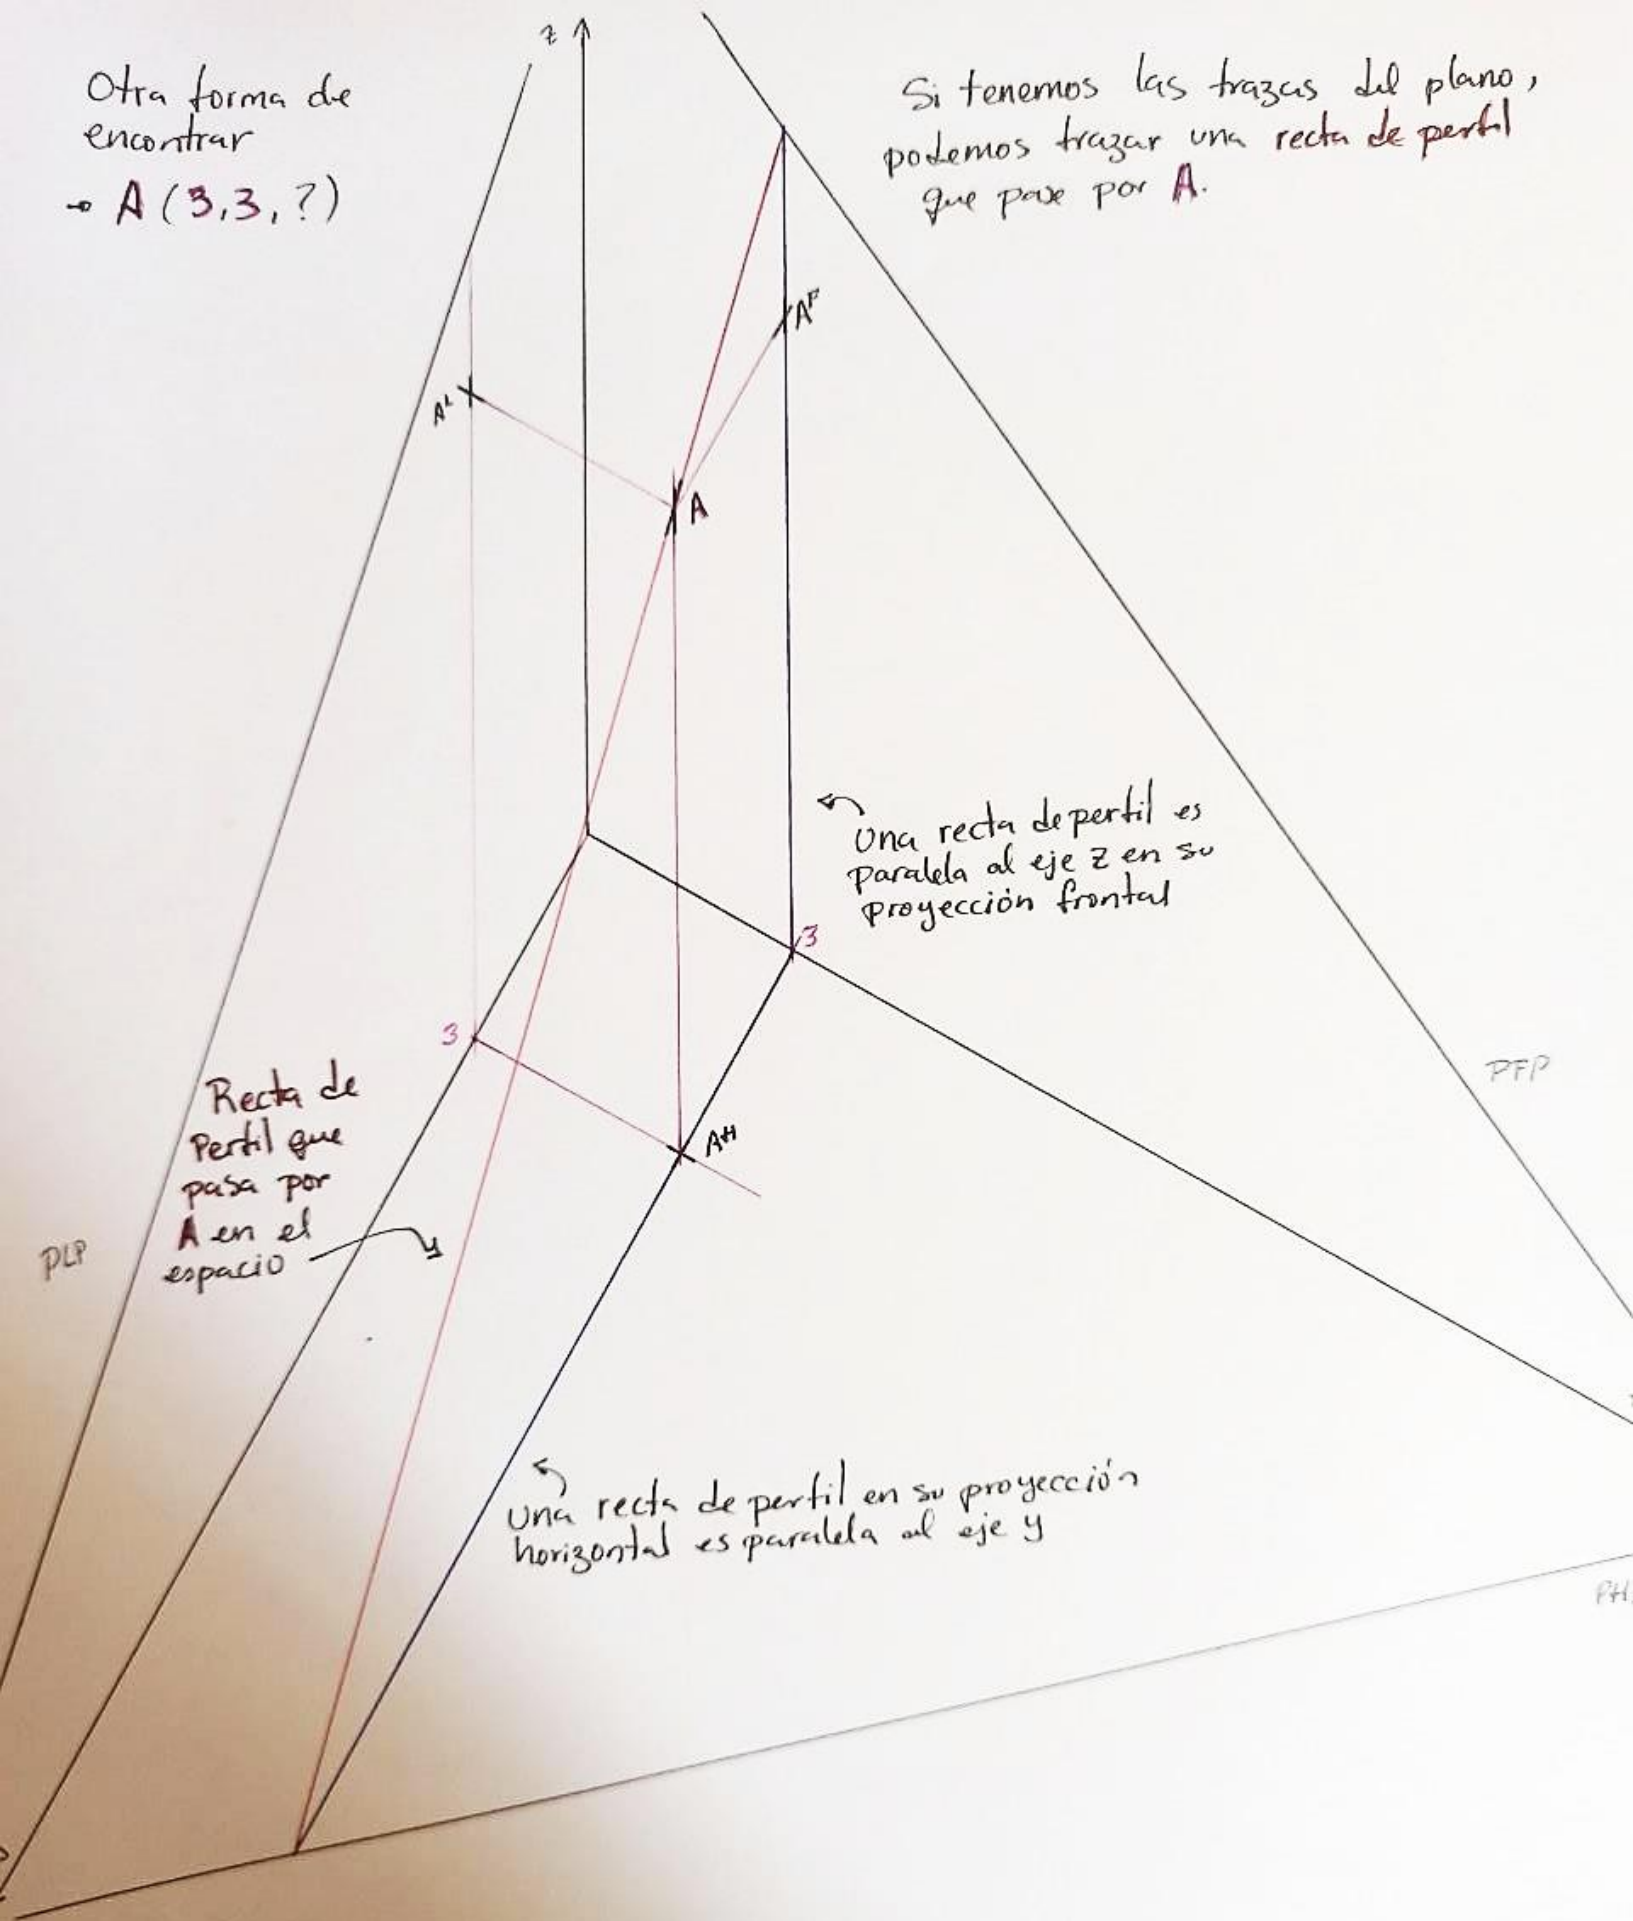 z
Otra forma de
encontrar
→ A (3,3,?)
Si tenemos las trazas del plano,
podemos trazar una recta de perfil
que pase por A.
Aᶠ
Aᴸ
A
Una recta de perfil es
paralela al eje z en su
proyección frontal
3
3
PFP
Recta de
Perfil que
pasa por
A en el
espacio
Aᴴ
PLP
Una recta de perfil en su proyección
horizontal es paralela al eje y